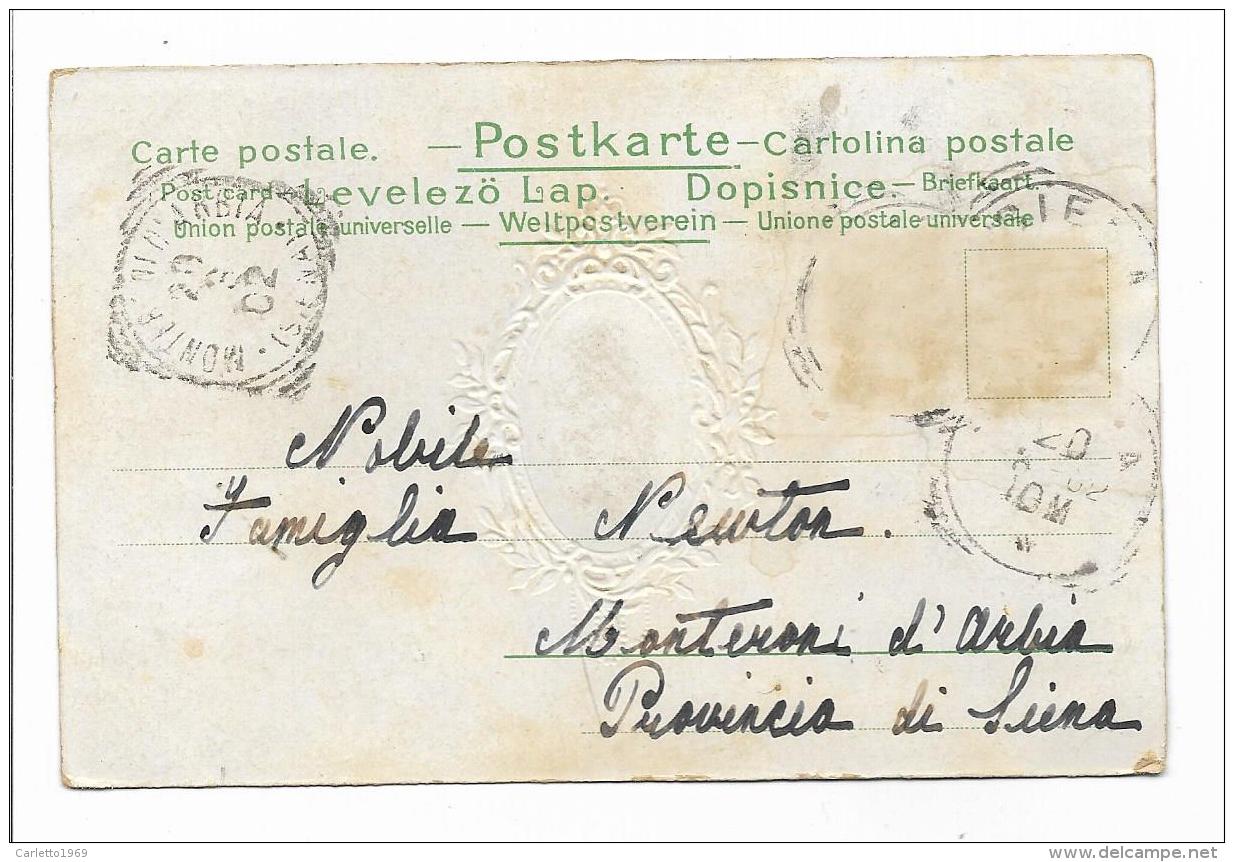 Carte postale. — Postkarte — Cartolina postale
Post card — Levelezö Lap. Dopisnice — Briefkaart.
Union postale universelle — Weltpostverein — Unione postale universale
ARBIA (SIENA)
20
02
SIE
10M
Nobile
Famiglia Newton.
Monteroni d'Arbia
Provincia di Siena
Carletto1969
www.delcampe.net